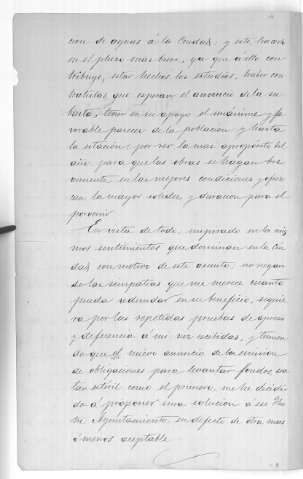 cion de aguas á la Ciudad, y este hacerse
en el plazo mas breve, ya que á ello con
tribuye, estar hechos los estudios, haber con
tratistas que esperan el anuncio de la su
basta, tener en su apoyo el unánime y fa
vorable parecer de la poblacion y hasta
la estacion, por ser la mas apropósito del
año para que las obras se hagan
en las mejores condiciones y ofrez
can la mayor solidez y duracion para el
porvenir
En vista de todo, inspirado en los mis
mos sentimientos que dominan en la Ciu
dad con motivo de este asunto; no negan
do las simpatías que me merece cuanto
pueda redundar en su beneficio, siquie
ra por las repetidas pruebas de aprecio
y deferencia á mí recibidas, y temien
do que el nuevo anuncio de la emision
de obligaciones para levantar fondos, sea
tan estéril como el primero, me he decidi
do á proponer una solucion á ese
Ayuntamiento, en defecto de otra mas
ó menos aceptable